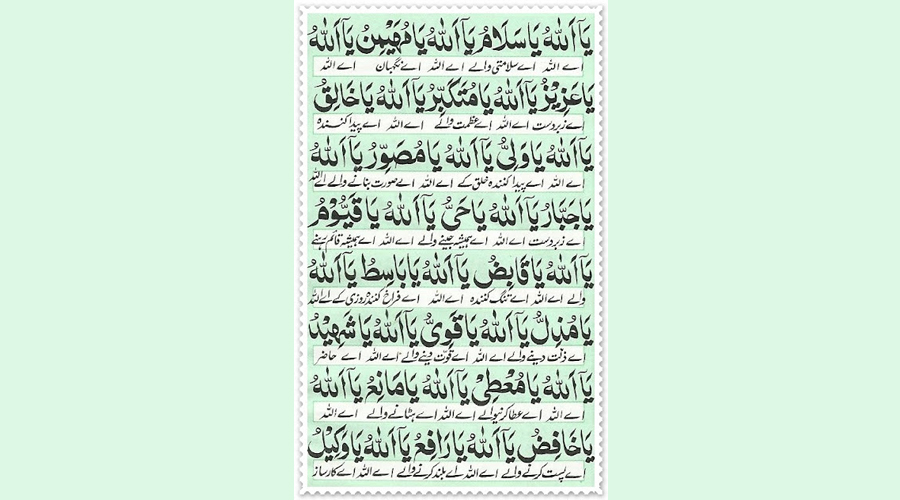 يَآ اَللّٰهُ يَا سَلَامُ يَآ اَللّٰهُ يَا مُهَيْمِنُ يَآ اَللّٰهُ
اے اللہ اے سلامتی والے اے اللہ اے نگہبان اے اللہ
يَا عَزِيْزُ يَآ اَللّٰهُ يَا مُتَكَبِّرُ يَآ اَللّٰهُ يَا خَالِقُ
اے زبردست اے اللہ اے عظمت والے اے اللہ اے پیدا کنندہ
يَآ اَللّٰهُ يَا وَلِيُّ يَآ اَللّٰهُ يَا مُصَوِّرُ يَآ اَللّٰهُ
اے اللہ اے پیدا کنندہ خلق کے اے اللہ اے صورت بنانے والے اے اللہ
يَا جَبَّارُ يَآ اَللّٰهُ يَا حَيُّ يَآ اَللّٰهُ يَا قَيُّوْمُ
اے زبردست اے اللہ اے ہمیشہ جینے والے اے اللہ اے ہمیشہ قائم رہنے
يَآ اَللّٰهُ يَا قَابِضُ يَآ اَللّٰهُ يَا بَاسِطُ يَآ اَللّٰهُ
والے اے اللہ اے تنگ کنندہ اے اللہ اے فراخ کنندہ روزی کے اے اللہ
يَا مُذِلُّ يَآ اَللّٰهُ يَا قَوِيُّ يَآ اَللّٰهُ يَا شَهِيْدُ
اے ذلت دینے والے اے اللہ اے قوت دینے والے اے اللہ اے حاضر
يَآ اَللّٰهُ يَا مُعْطِيْ يَآ اَللّٰهُ يَا مَانِعُ يَآ اَللّٰهُ
اے اللہ اے عطا کرنیوالے اے اللہ اے ہٹانے والے اے اللہ
يَا خَافِضُ يَآ اَللّٰهُ يَا رَافِعُ يَآ اَللّٰهُ يَا وَكِيْلُ
اے پست کرنے والے اے اللہ اے بلند کرنے والے اے اللہ اے کارساز